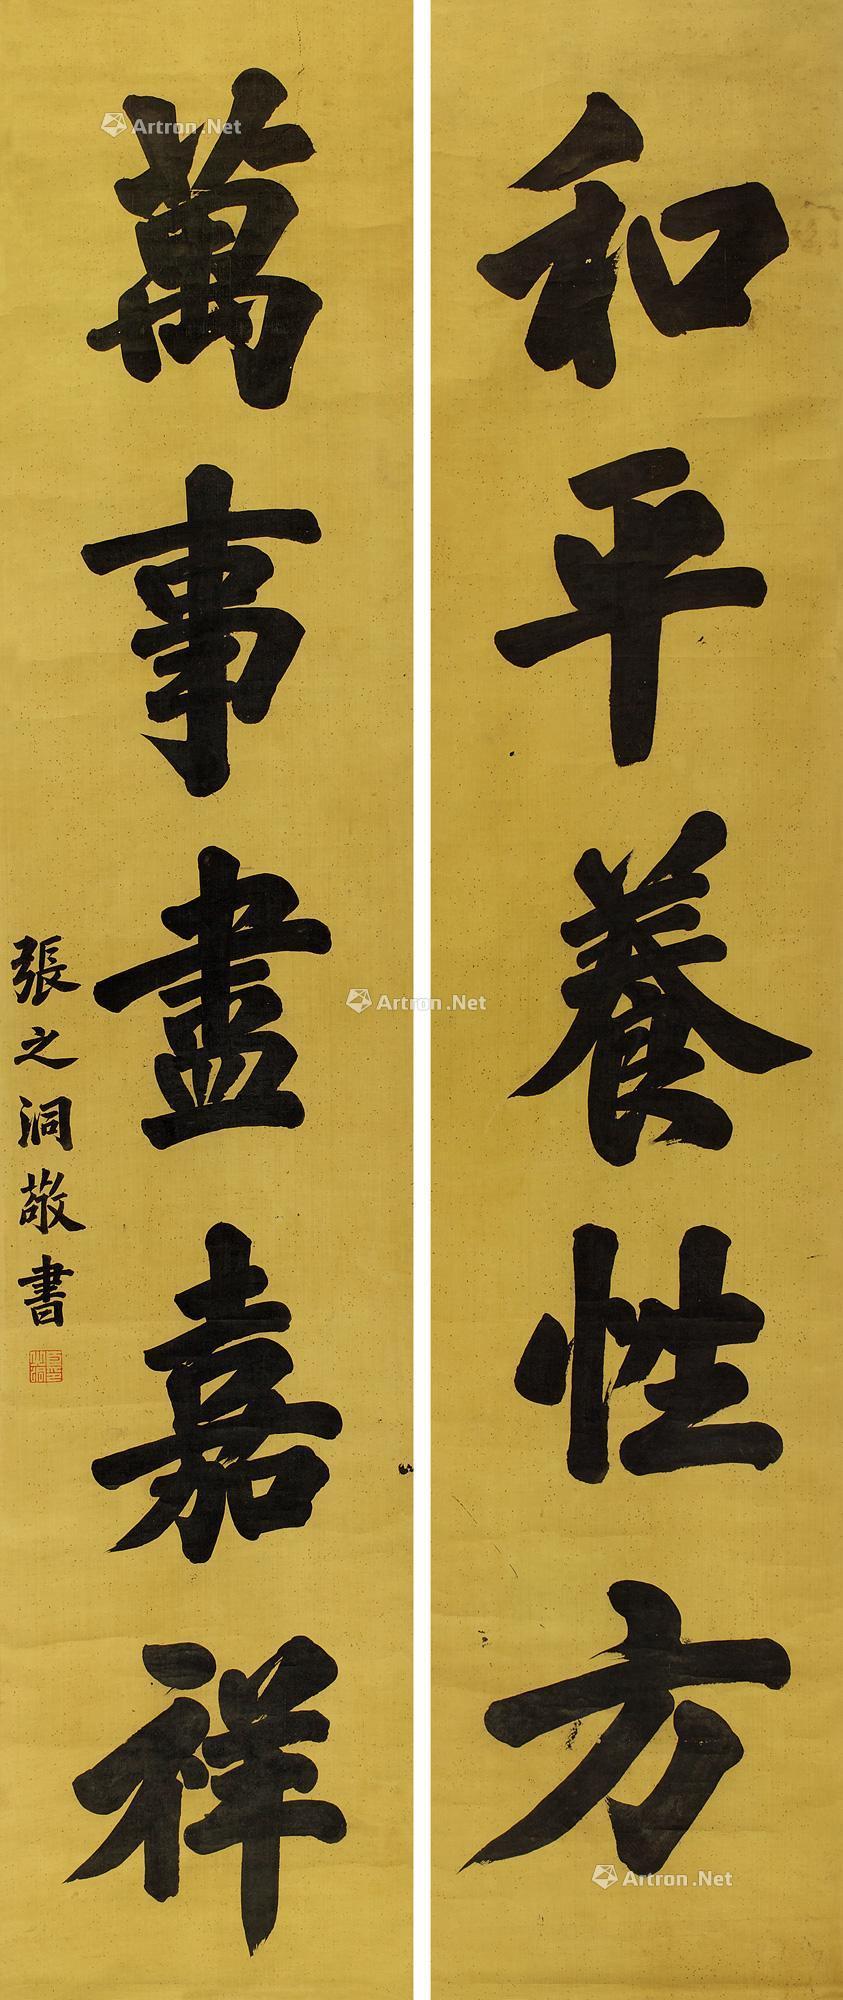 和平養性方
萬事盡嘉祥
張之洞敬書
Artron.Net
Artron.Net
Artron.Net